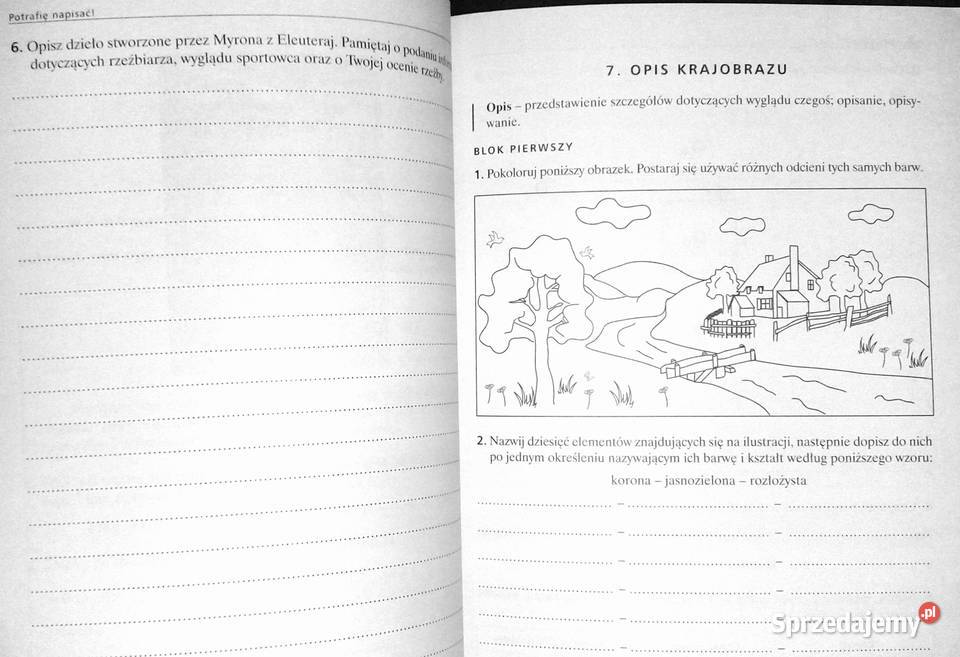 Potrafię napisać!
6. Opisz dzieło stworzone przez Myrona z Eleuteraj. Pamiętaj o podaniu
dotyczących rzeźbiarza, wyglądu sportowca oraz o Twojej ocenie rzeźby.
7. OPIS KRAJOBRAZU
Opis – przedstawienie szczegółów dotyczących wyglądu czegoś; opisanie, opisy-
wanie.
BLOK PIERWSZY
1. Pokoloruj poniższy obrazek. Postaraj się używać różnych odcieni tych samych barw.
2. Nazwij dziesięć elementów znajdujących się na ilustracji, następnie dopisz do nich
po jednym określeniu nazywającym ich barwę i kształt według poniższego wzoru:
korona – jasnozielona – rozłożysta
Sprzedajemy.pl